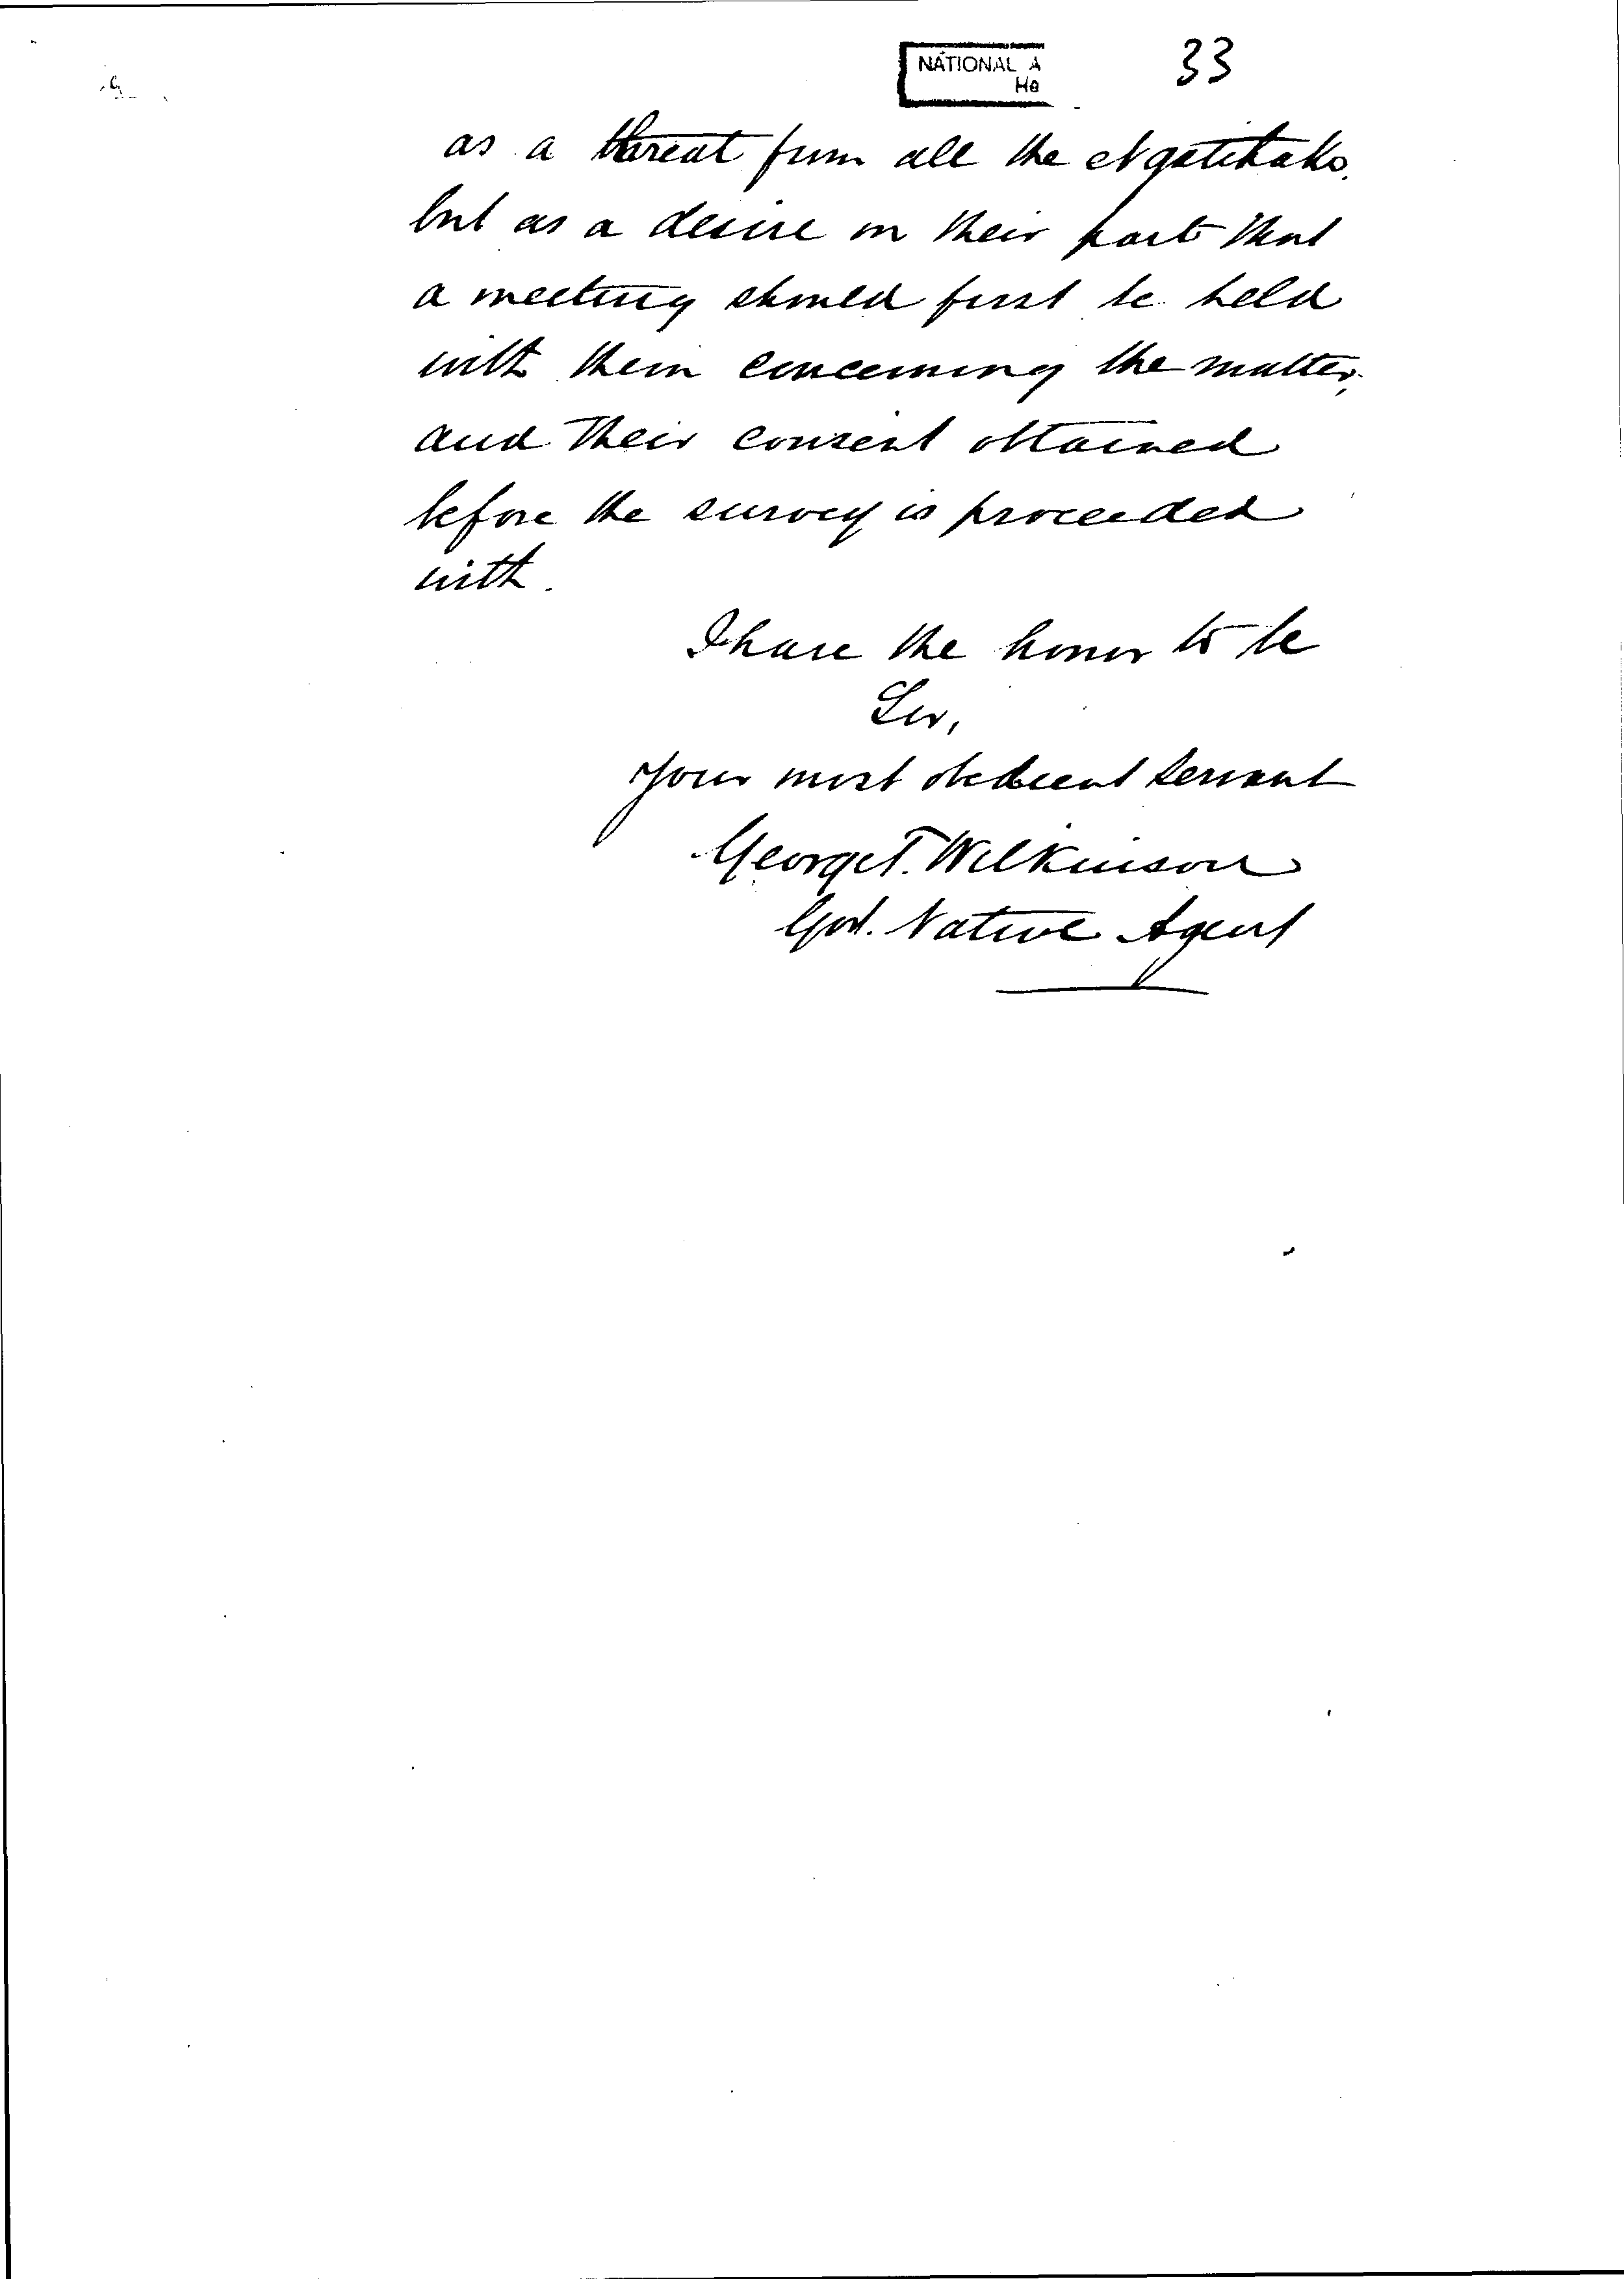 NATIONAL A
He
33
as a threat from all the Ngatihako,
but as a desire on their part that
a meeting should first be held
with them concerning the matter,
and their consent obtained
before the survey is proceeded
with.
I have the honor to be
Sir,
Your most obedient servant
George T. Wilkinson
Govt. Native Agent